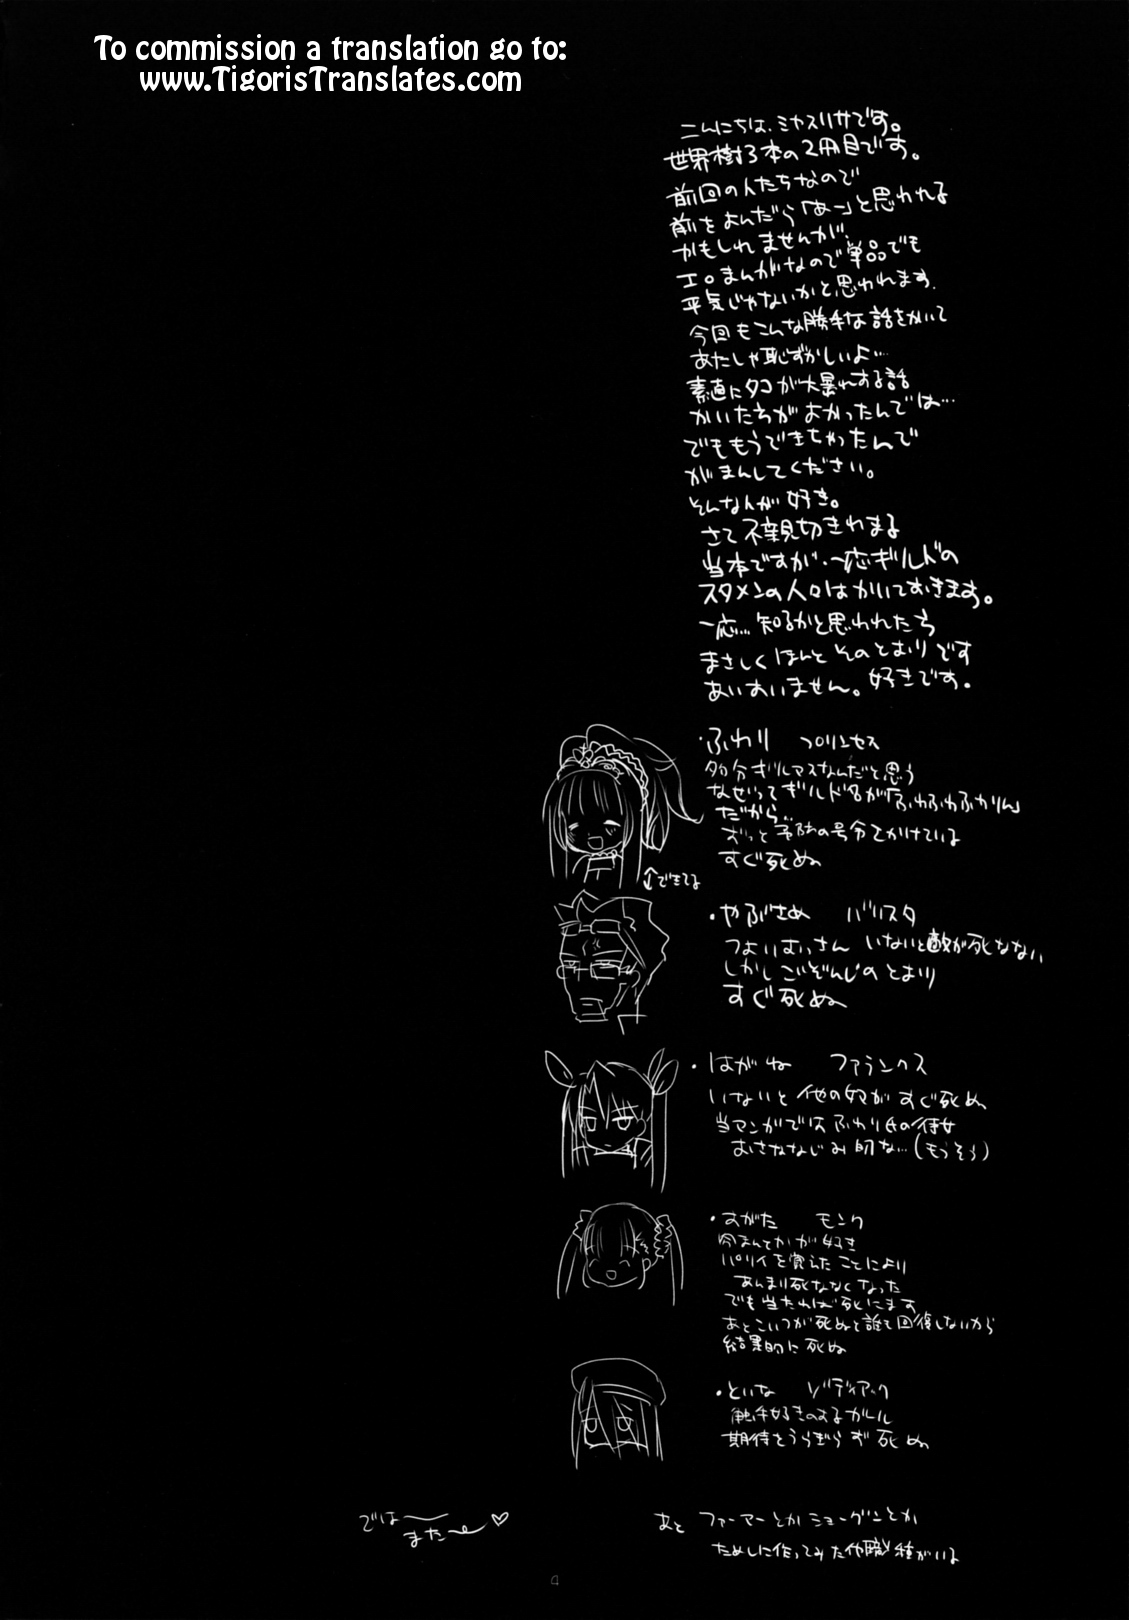 To commission a translation go to:
www.TigorisTranslates.com
こんにちは、ミヤスリサです。
世界樹3本の2冊目です。
前回の人たちなので
前をよんだら「あー」と思われる
かもしれませんが、
エロまんがなので単品でも
平気じゃないかと思われます。
今回もこんな勝手な話をかいて
あたしゃ恥ずかしいよ…
素直にタコが大暴れする話
かいたらがよかったんでは…
でももうできちゃったんで
がまんしてください。
そんなんが好き。
さて不親切きわまる
当本ですが、一応ギルドの
スタメンの人々はかいておきます。
一応… 知るかと思われたら
まさしくほんと そのとおりです
あいすいません。好きです。
・ふわり プリンセス
多分ギルマスなんだと思う
なぜってギルド名が「ふわふわふわりん」
だから…
ずっと予防の号令をかけている
すぐ死ぬ
↑できてる
・やぶさめ バリスタ
つよいおっさん いないと敵が死なない
しかしごぞんじのとおり
すぐ死ぬ
・はがね ファランクス
いないと他の奴がすぐ死ぬ
当マンガではふわり氏の侍女
おさななじみ的な…(もうそう)
・すがた モンク
パリィを覚えたことにより
あんまり死ななくなった
でも当たれば死にます
あとこいつが死ぬと誰も回復しないから
結果的に死ぬ
・といな ゾディアック
触手好きのするガール
期待をうらぎらず死ぬ
では
また
あと ファーマーとかショーグンとか
ためしに作ってみた他職種がいる